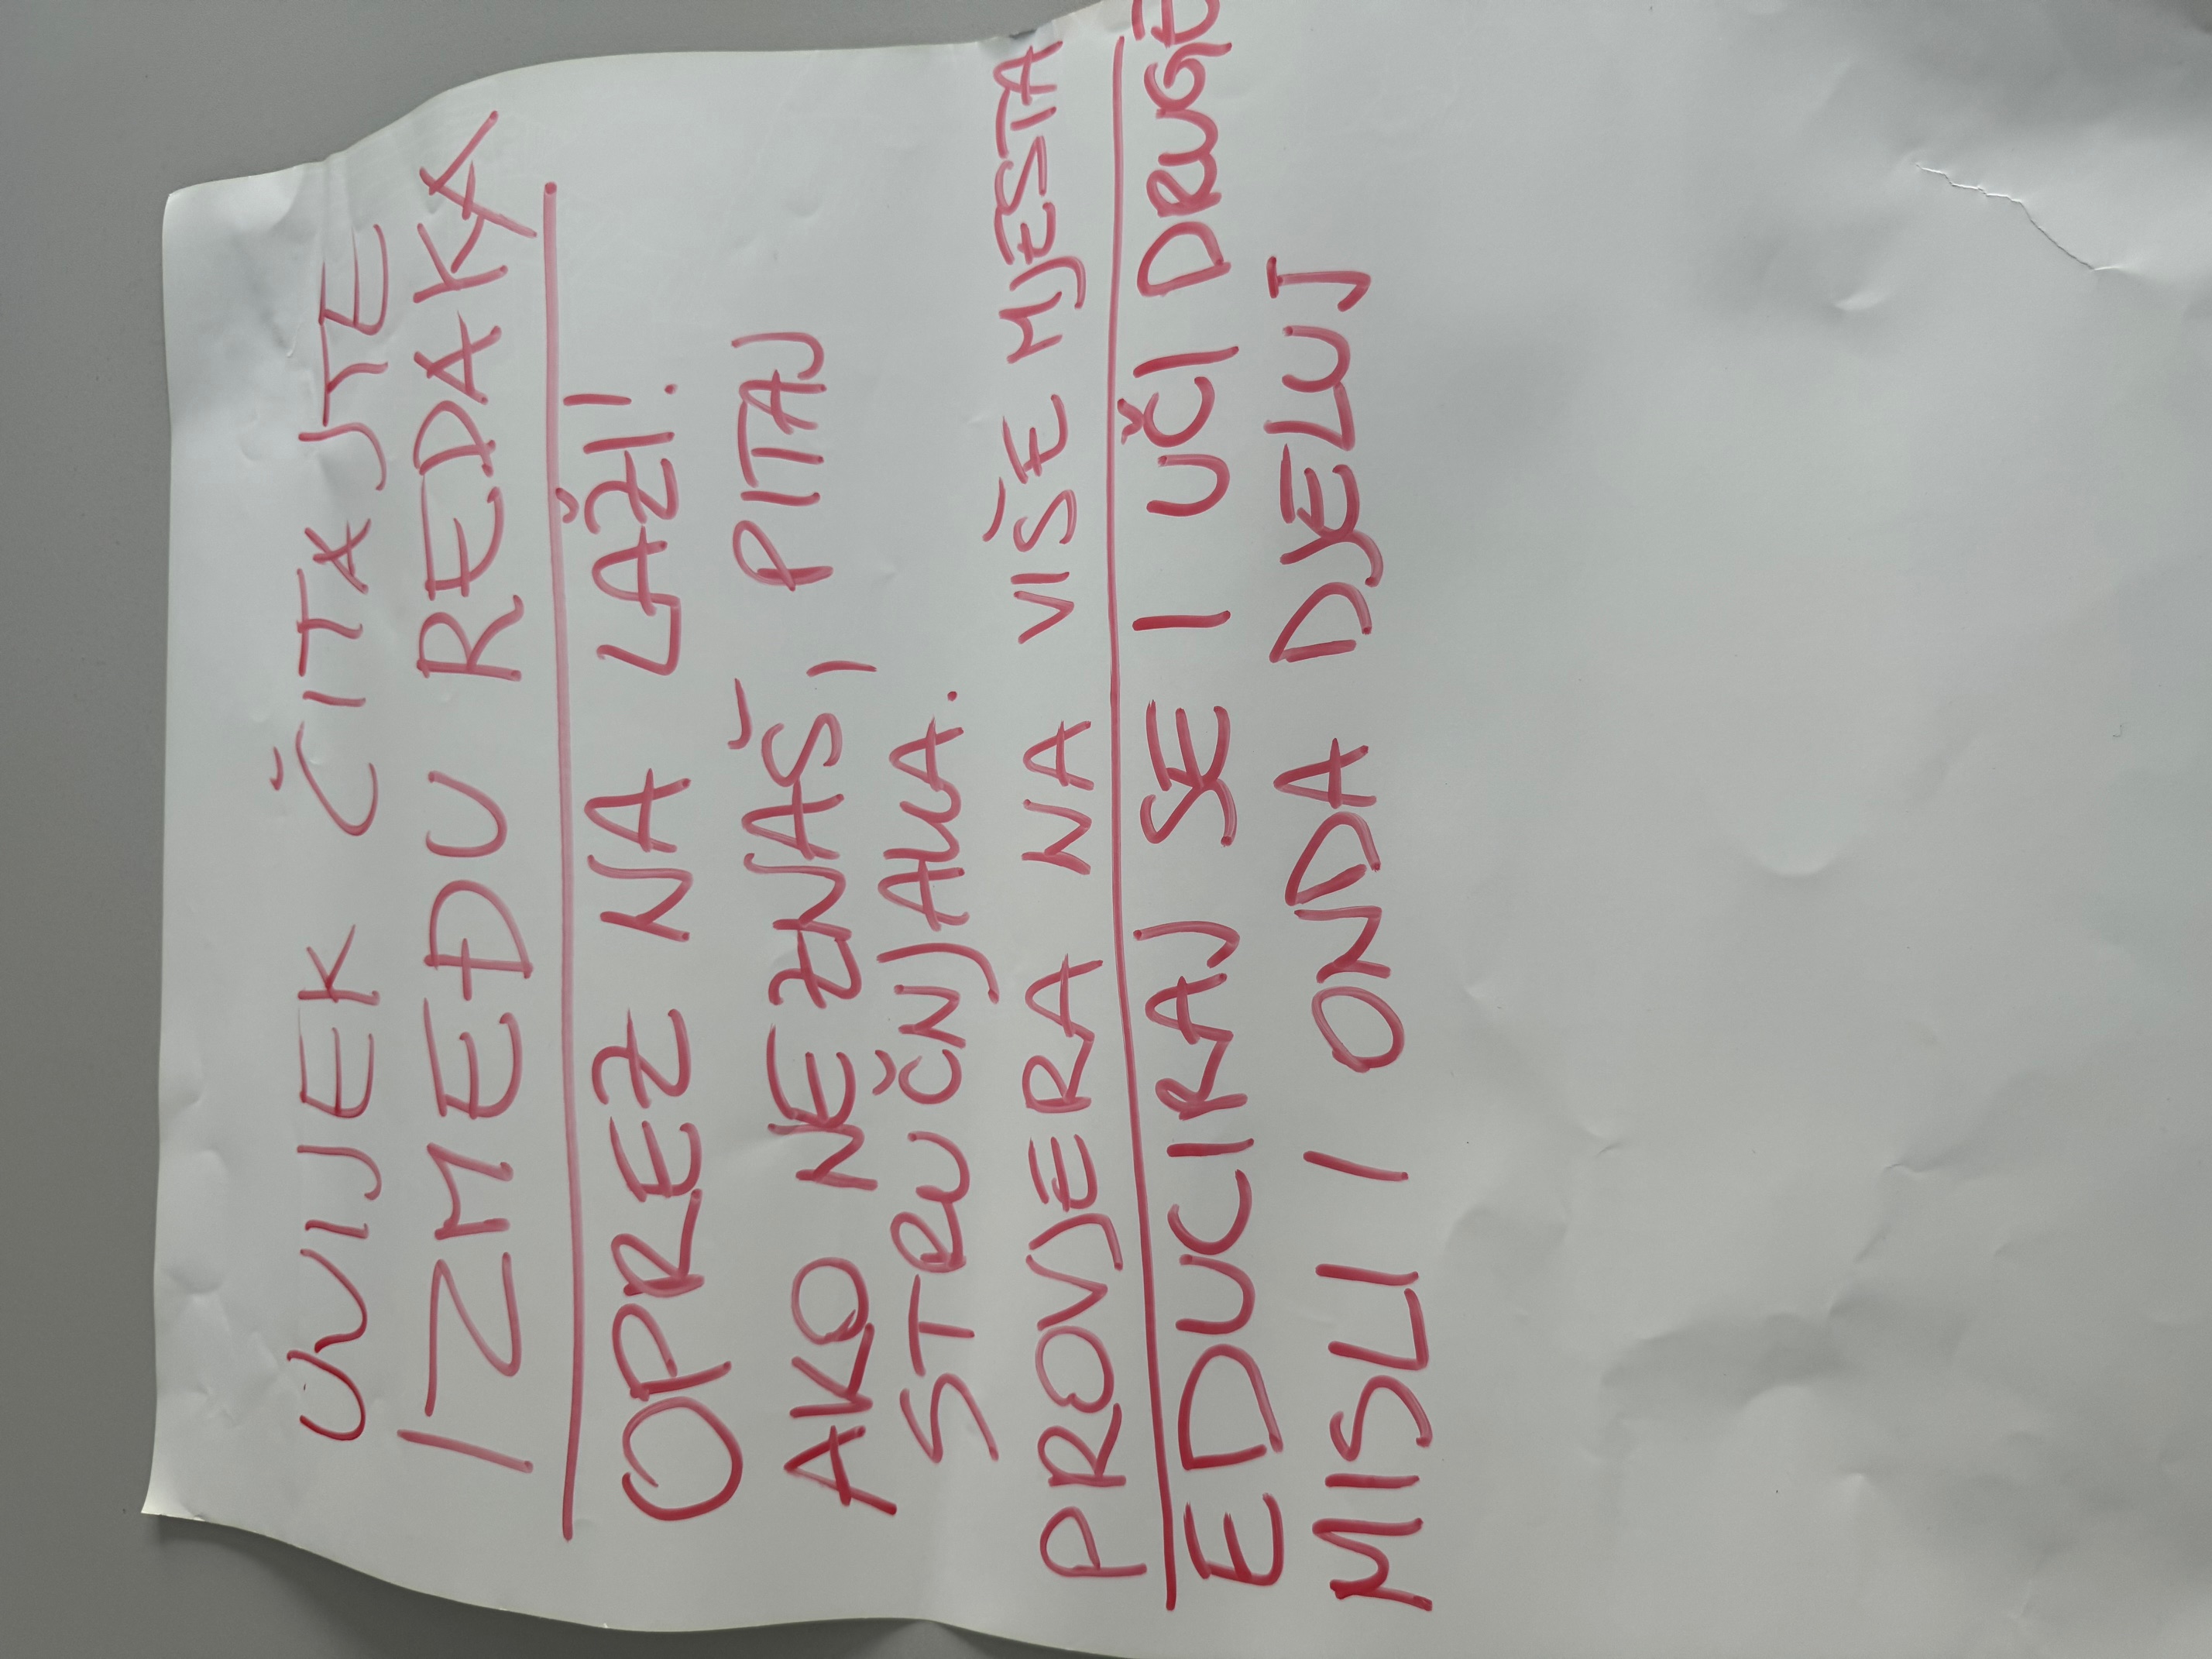 UVIJEK ČITAJTE
IZMEĐU REDAKA
OPREZ NA LAŽI!
AKO NE ZNAŠ, PITAJ
STRUČNJAKA.
PROVJERA NA VIŠE MJESTA
EDUCIRAJ SE I UČI DRUGE
MISLI I ONDA DJELUJ